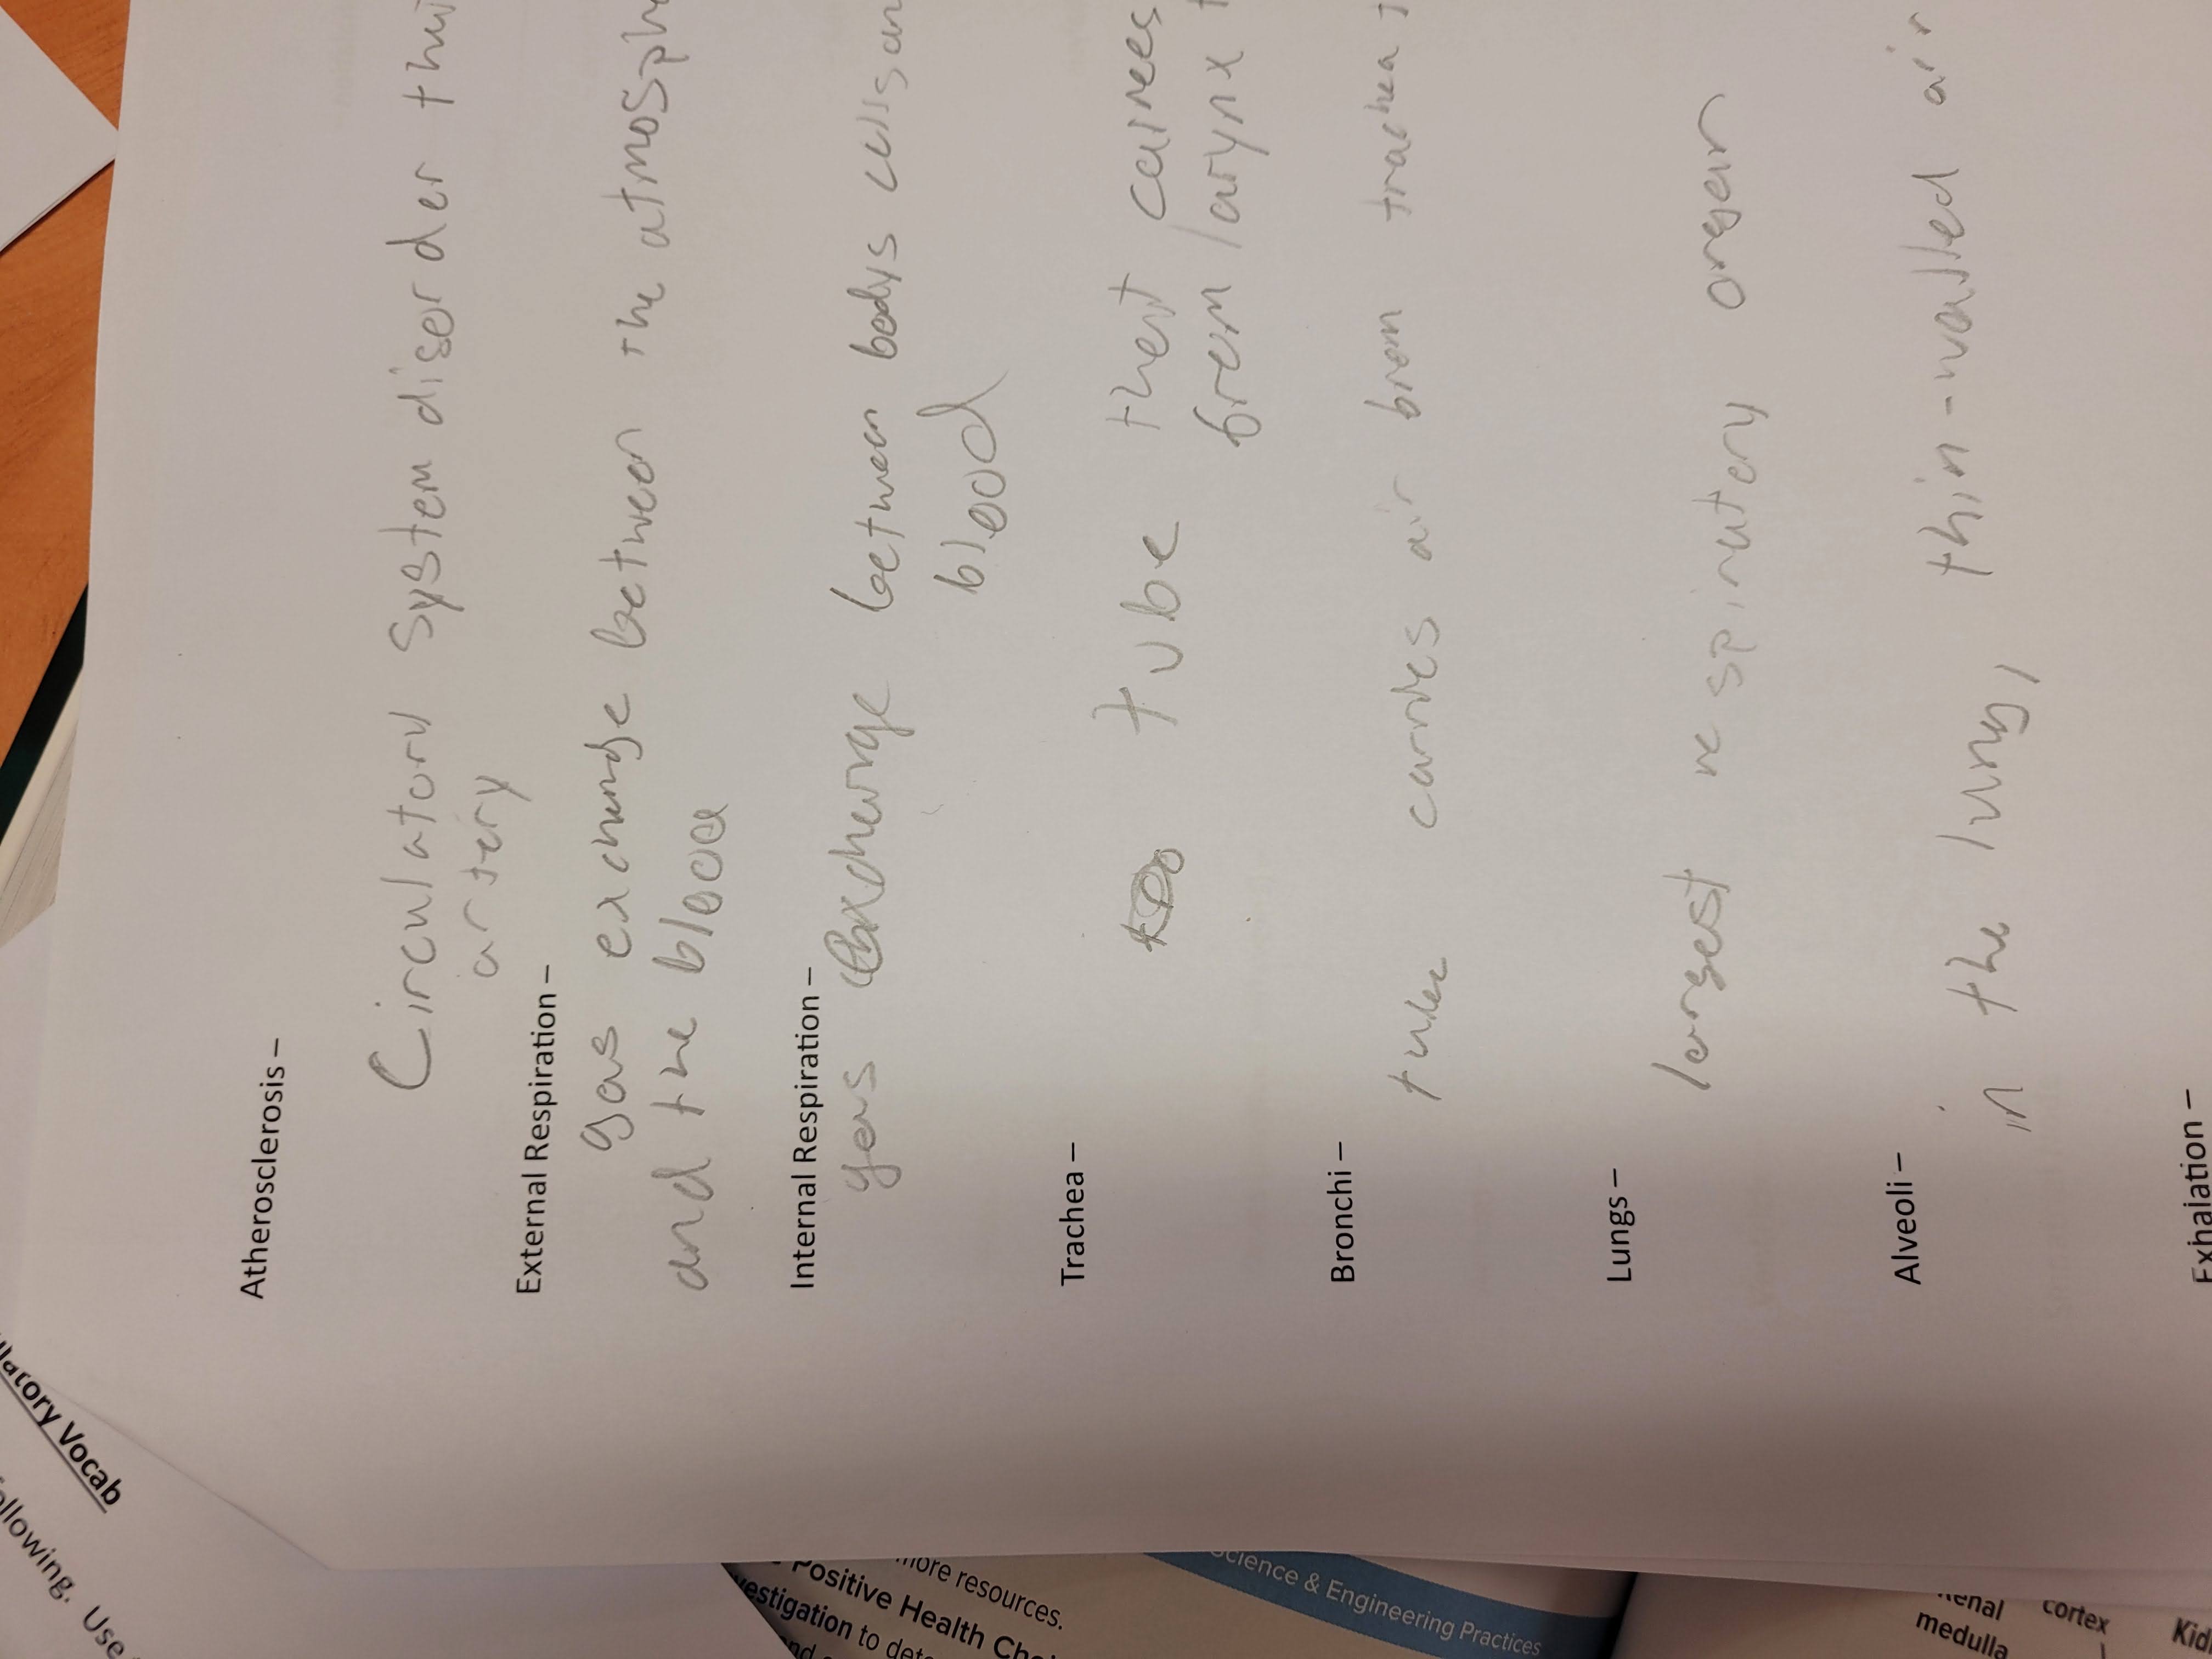 Atherosclerosis –
Circulatory System disorder
artery
External Respiration –
gas exchange between the
and the blood
Internal Respiration –
gas exchange between bodys cells
blood
Trachea –
tube that
from larynx
Bronchi –
tube carries air from trachea
Lungs –
largest respiratory organ
Alveoli –
in the lung, thin-walled air
Exhalation –
Vocab
Use
more resources.
Positive Health
to
Science & Engineering Practices
medulla
cortex